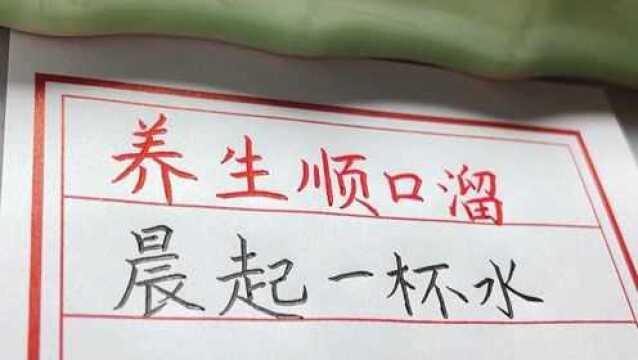 养生顺口溜
晨起一杯水